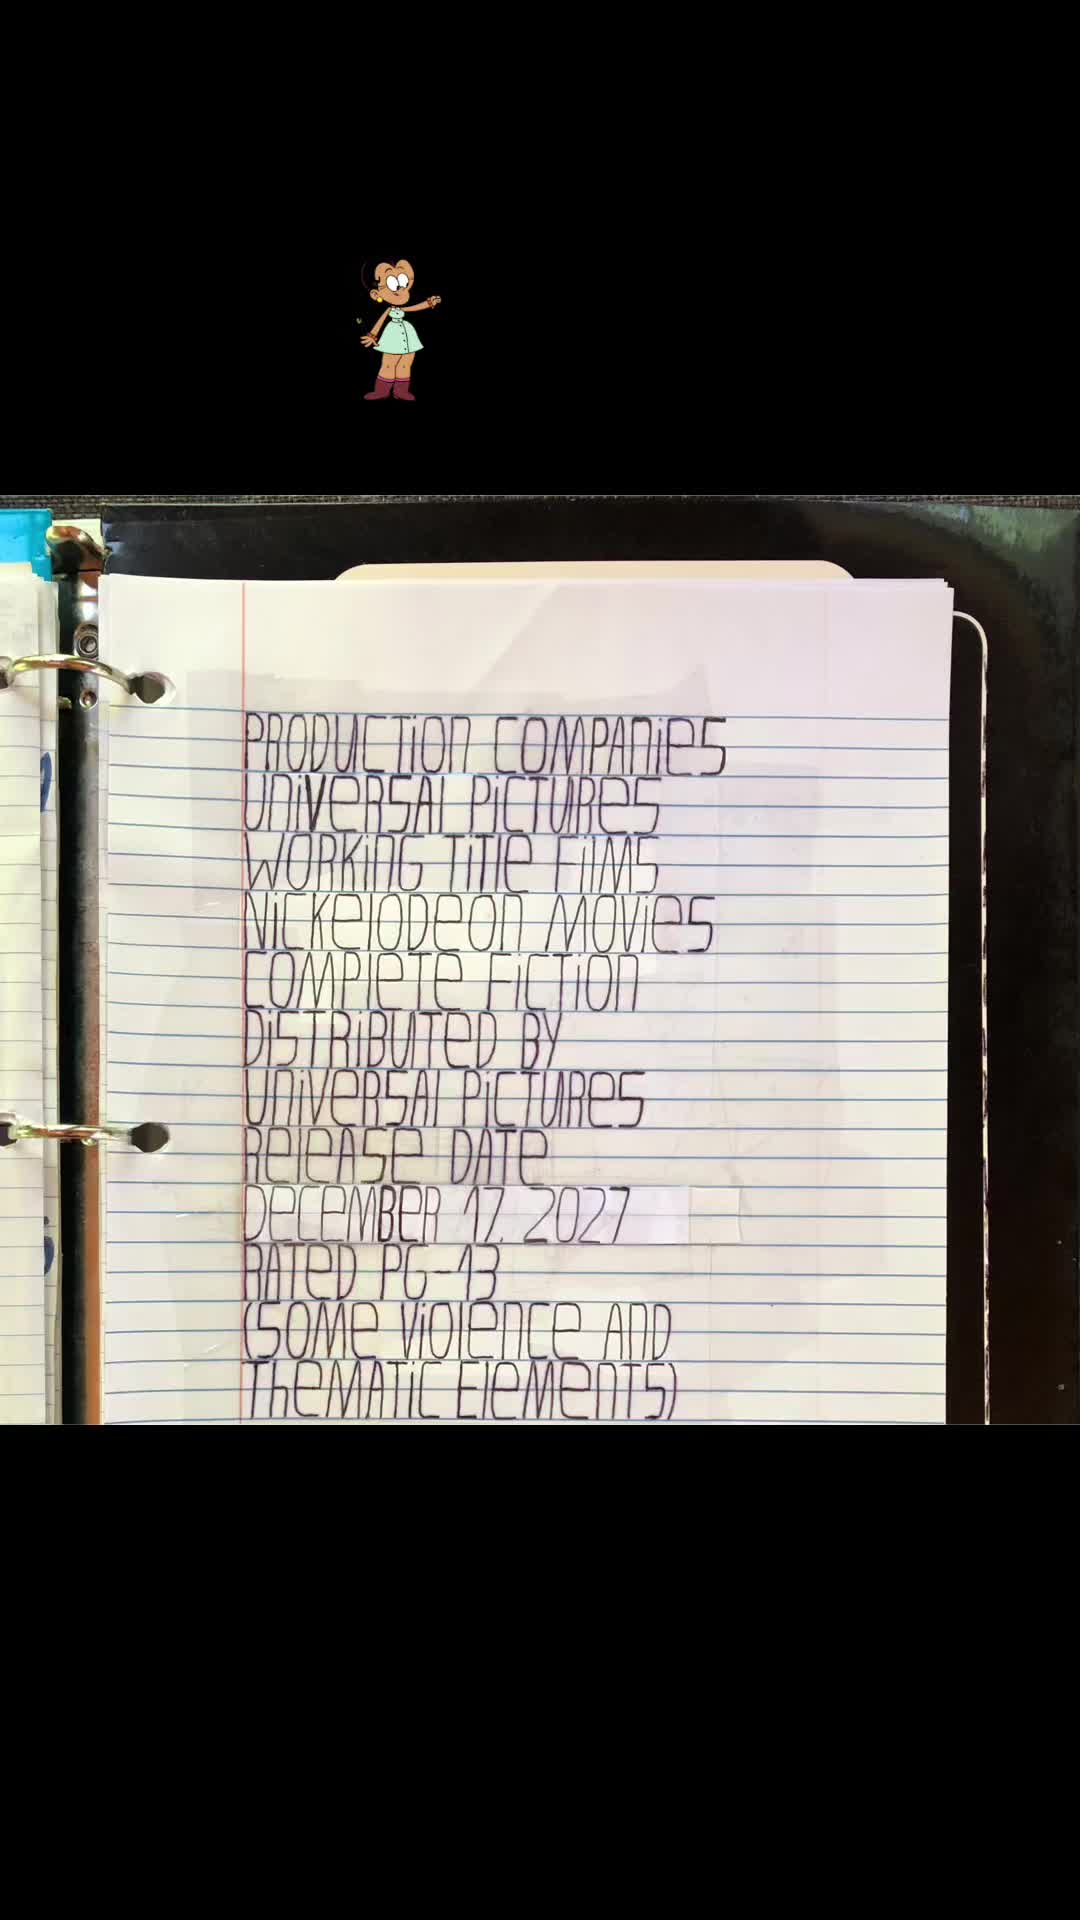 PRODUCTION COMPANIES
UNIVERSAL PICTURES
WORKING TITLE FILMS
NICKELODEON MOVIES
COMPLETE FICTION
DISTRIBUTED BY
UNIVERSAL PICTURES
RELEASE DATE
DECEMBER 17, 2027
RATED PG-13
(SOME VIOLENCE AND
THEMATIC ELEMENTS)